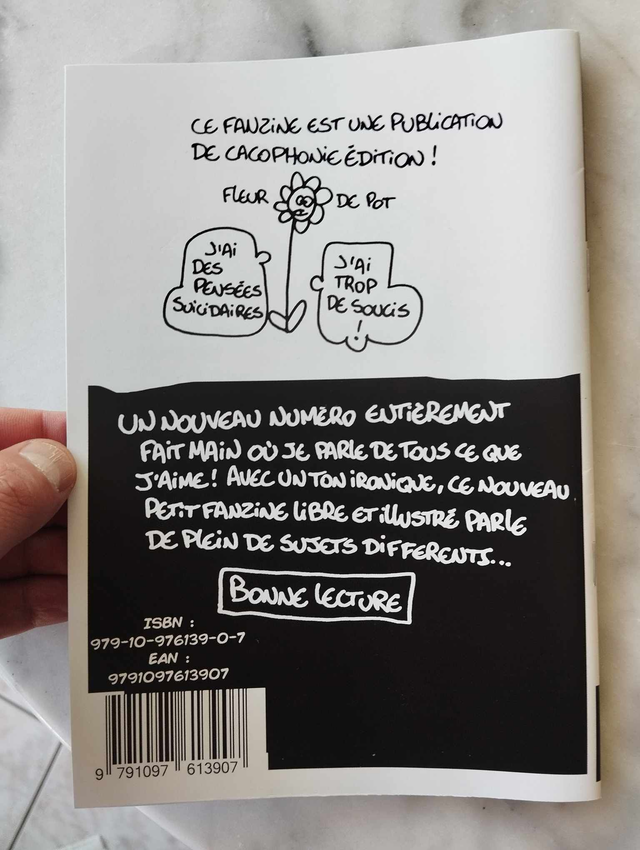 CE FANZINE EST UNE PUBLICATION
DE CACOPHONIE ÉDITION !
FLEUR DE POT
J'AI
DES
PENSÉES
SUICIDAIRES
J'AI
TROP
DE SOUCIS
!
UN NOUVEAU NUMÉRO ENTIÈREMENT
FAIT MAIN OÙ JE PARLE DE TOUS CE QUE
J'AIME ! AVEC UN TON IRONIQUE, CE NOUVEAU
PETIT FANZINE LIBRE ET ILLUSTRÉ PARLE
DE PLEIN DE SUJETS DIFFERENTS...
BONNE LECTURE
ISBN :
979-10-976139-0-7
EAN :
9791097613907
9 791097 613907